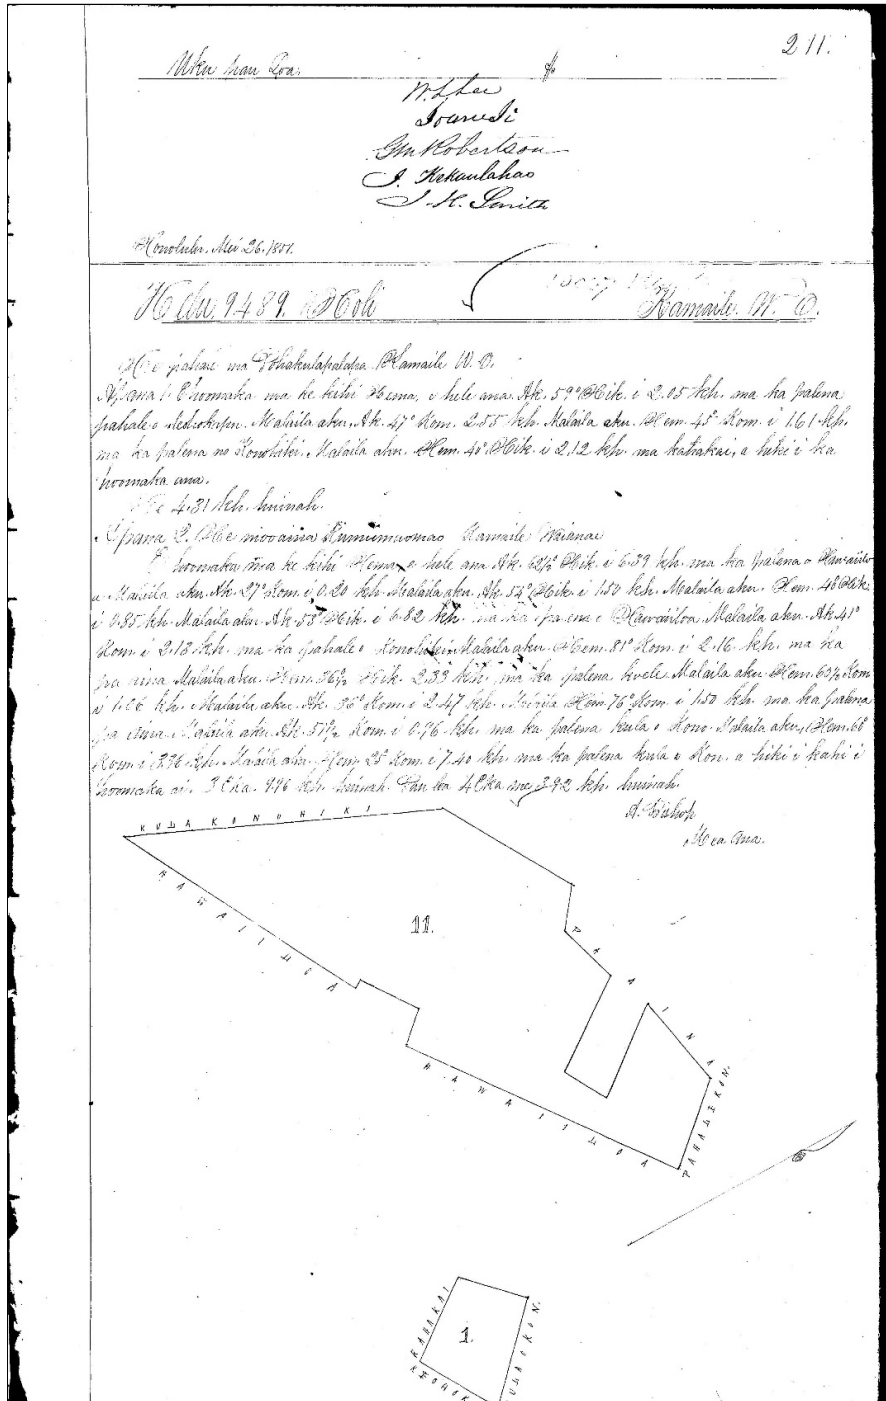 211.
Uku pau Loa. $
W. L. Lee
Ioane Ii
GM Robertson
J. Kekaulahao
J. H. Smith
Honolulu. Mei 26. 1851.
Helu. 9489. Holi Kamaile. W. O.
He pahale ma Kamaile W. O.
Apana 1. E hoomaka ma ke kihi Hema, e hele ana Ak. 59° Hik. i 2.05 kh. ma ka palena
pahale o Malaila aku. Ak. 47° Kom. 2.55 kh. Malaila aku. Hem. 45° Kom. i 1.61 kh.
ma ka palena no Konohiki. Malaila aku. Hem. 40° Hik. i 2.12 kh. ma kahakai, a hiki i ka
hoomaka ana.
4.31 kh. huinah.
Apana 2. He mooaina Kamaile Waianae
E hoomaka ma ke kihi Hema, e hele ana Ak. 62½° Hik. i 6.39 kh. ma ka palena o Hawaiiloa
Malaila aku. Ak. 27° Kom. i 0.20 kh. Malaila aku. Ak. 54° Hik. i 1.50 kh. Malaila aku. Hem. 48° Hik.
i 0.85 kh. Malaila aku. Ak. 58° Hik. i 6.82 kh. ma ka palena o Hawaiiloa. Malaila aku. Ak. 41°
Kom. i 2.13 kh. ma ka pahale o Konohiki Malaila aku. Hem. 81° Kom. i 2.16 kh. ma ka
pa aina Malaila aku. Hem. 36½° Hik. 2.33 kh. ma ka palena Malaila aku. Hem. 63½ Kom
i 1.06 kh. Malaila aku. Ak. 36° Kom. i 2.47 kh. Malaila Hem. 76° Kom. i 1.50 kh. ma ka palena
pa aina. Malaila aku. Ak. 51½ Kom. i 0.96 kh. ma ka palena kula o Kono. Malaila aku. Hem. 68°
Kom. i 3.96 kh. Malaila aku. Hem. 25° Kom. i 7.40 kh. ma ka palena kula o Kon. a hiki i kahi i
hoomaka ai. 3 Eka. 9.96 kh. huinah. Pau ka 4 Eka me 3.92 kh. huinah.
A. Bishop
Mea Ana.
KULA KONOHIKI
HAWAIILOA
11.
PA AINA
HAWAIILOA
PAHALEKON.
KAHAKAI
1.
KULA O KON.